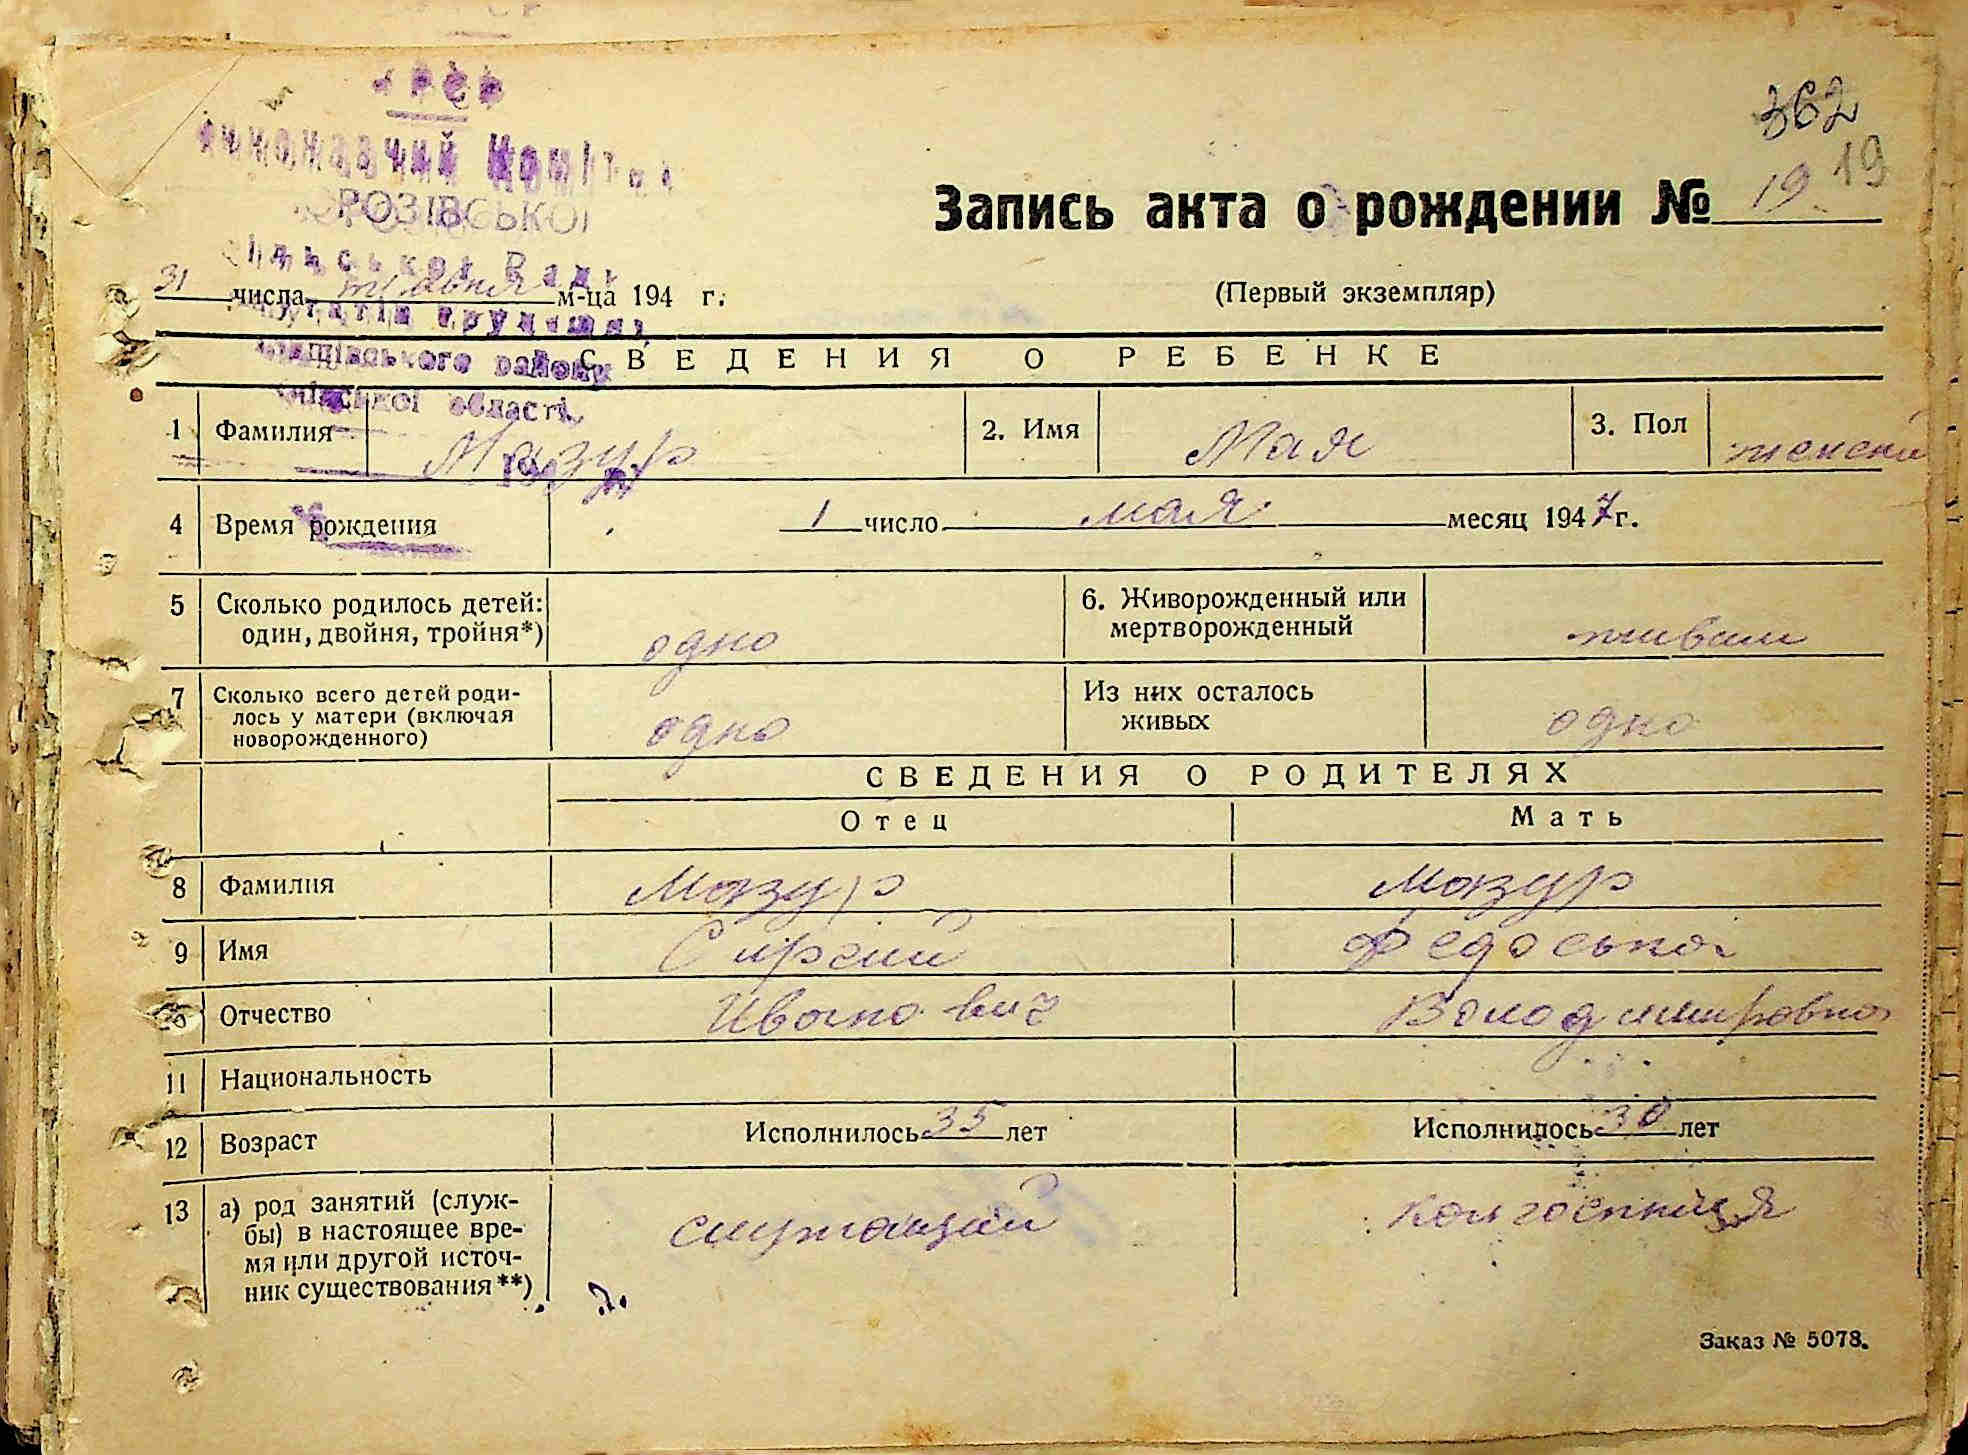 УРСР
Виконавчий Комітет
РОЗІВСЬКОЇ
сільської Ради
депутатів трудящих
району
області
362
19
Запись акта о рождении № 19
31 числа травня м-ца 194 г.
(Первый экземпляр)
СВЕДЕНИЯ О РЕБЕНКЕ
1 Фамилия Мазур 2. Имя Мая 3. Пол женский
4 Время рождения 1 число мая месяц 1947 г.
5 Сколько родилось детей: один, двойня, тройня*) одно 6. Живорожденный или мертворожденный живым
7 Сколько всего детей родилось у матери (включая новорожденного) одно Из них осталось живых одно
СВЕДЕНИЯ О РОДИТЕЛЯХ
Отец Мать
8 Фамилия Мазур Мазур
9 Имя Сиргий Федоська
10 Отчество Иванович Володимировна
11 Национальность
12 Возраст Исполнилось 35 лет Исполнилось 30 лет
13 а) род занятий (служ-
бы) в настоящее вре-
мя или другой источ-
ник существования**)
служащий колгоспниця
Заказ № 5078.